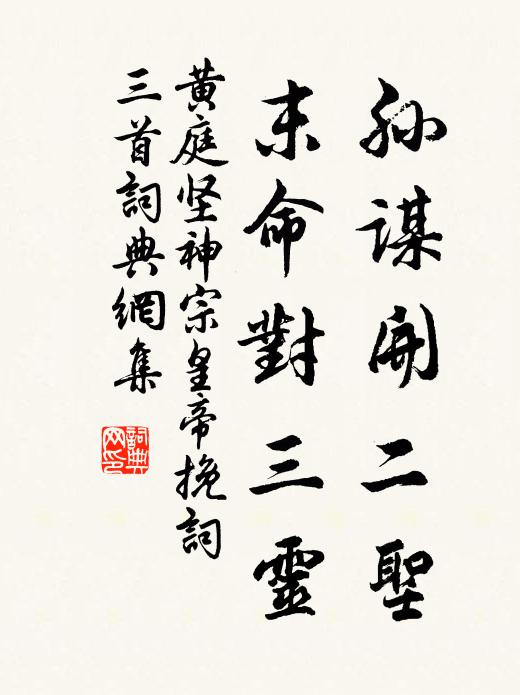 孙謀開二聖
末命對三靈
黄庭坚神宗皇帝挽詞
三首詞典網集
詞典
网印